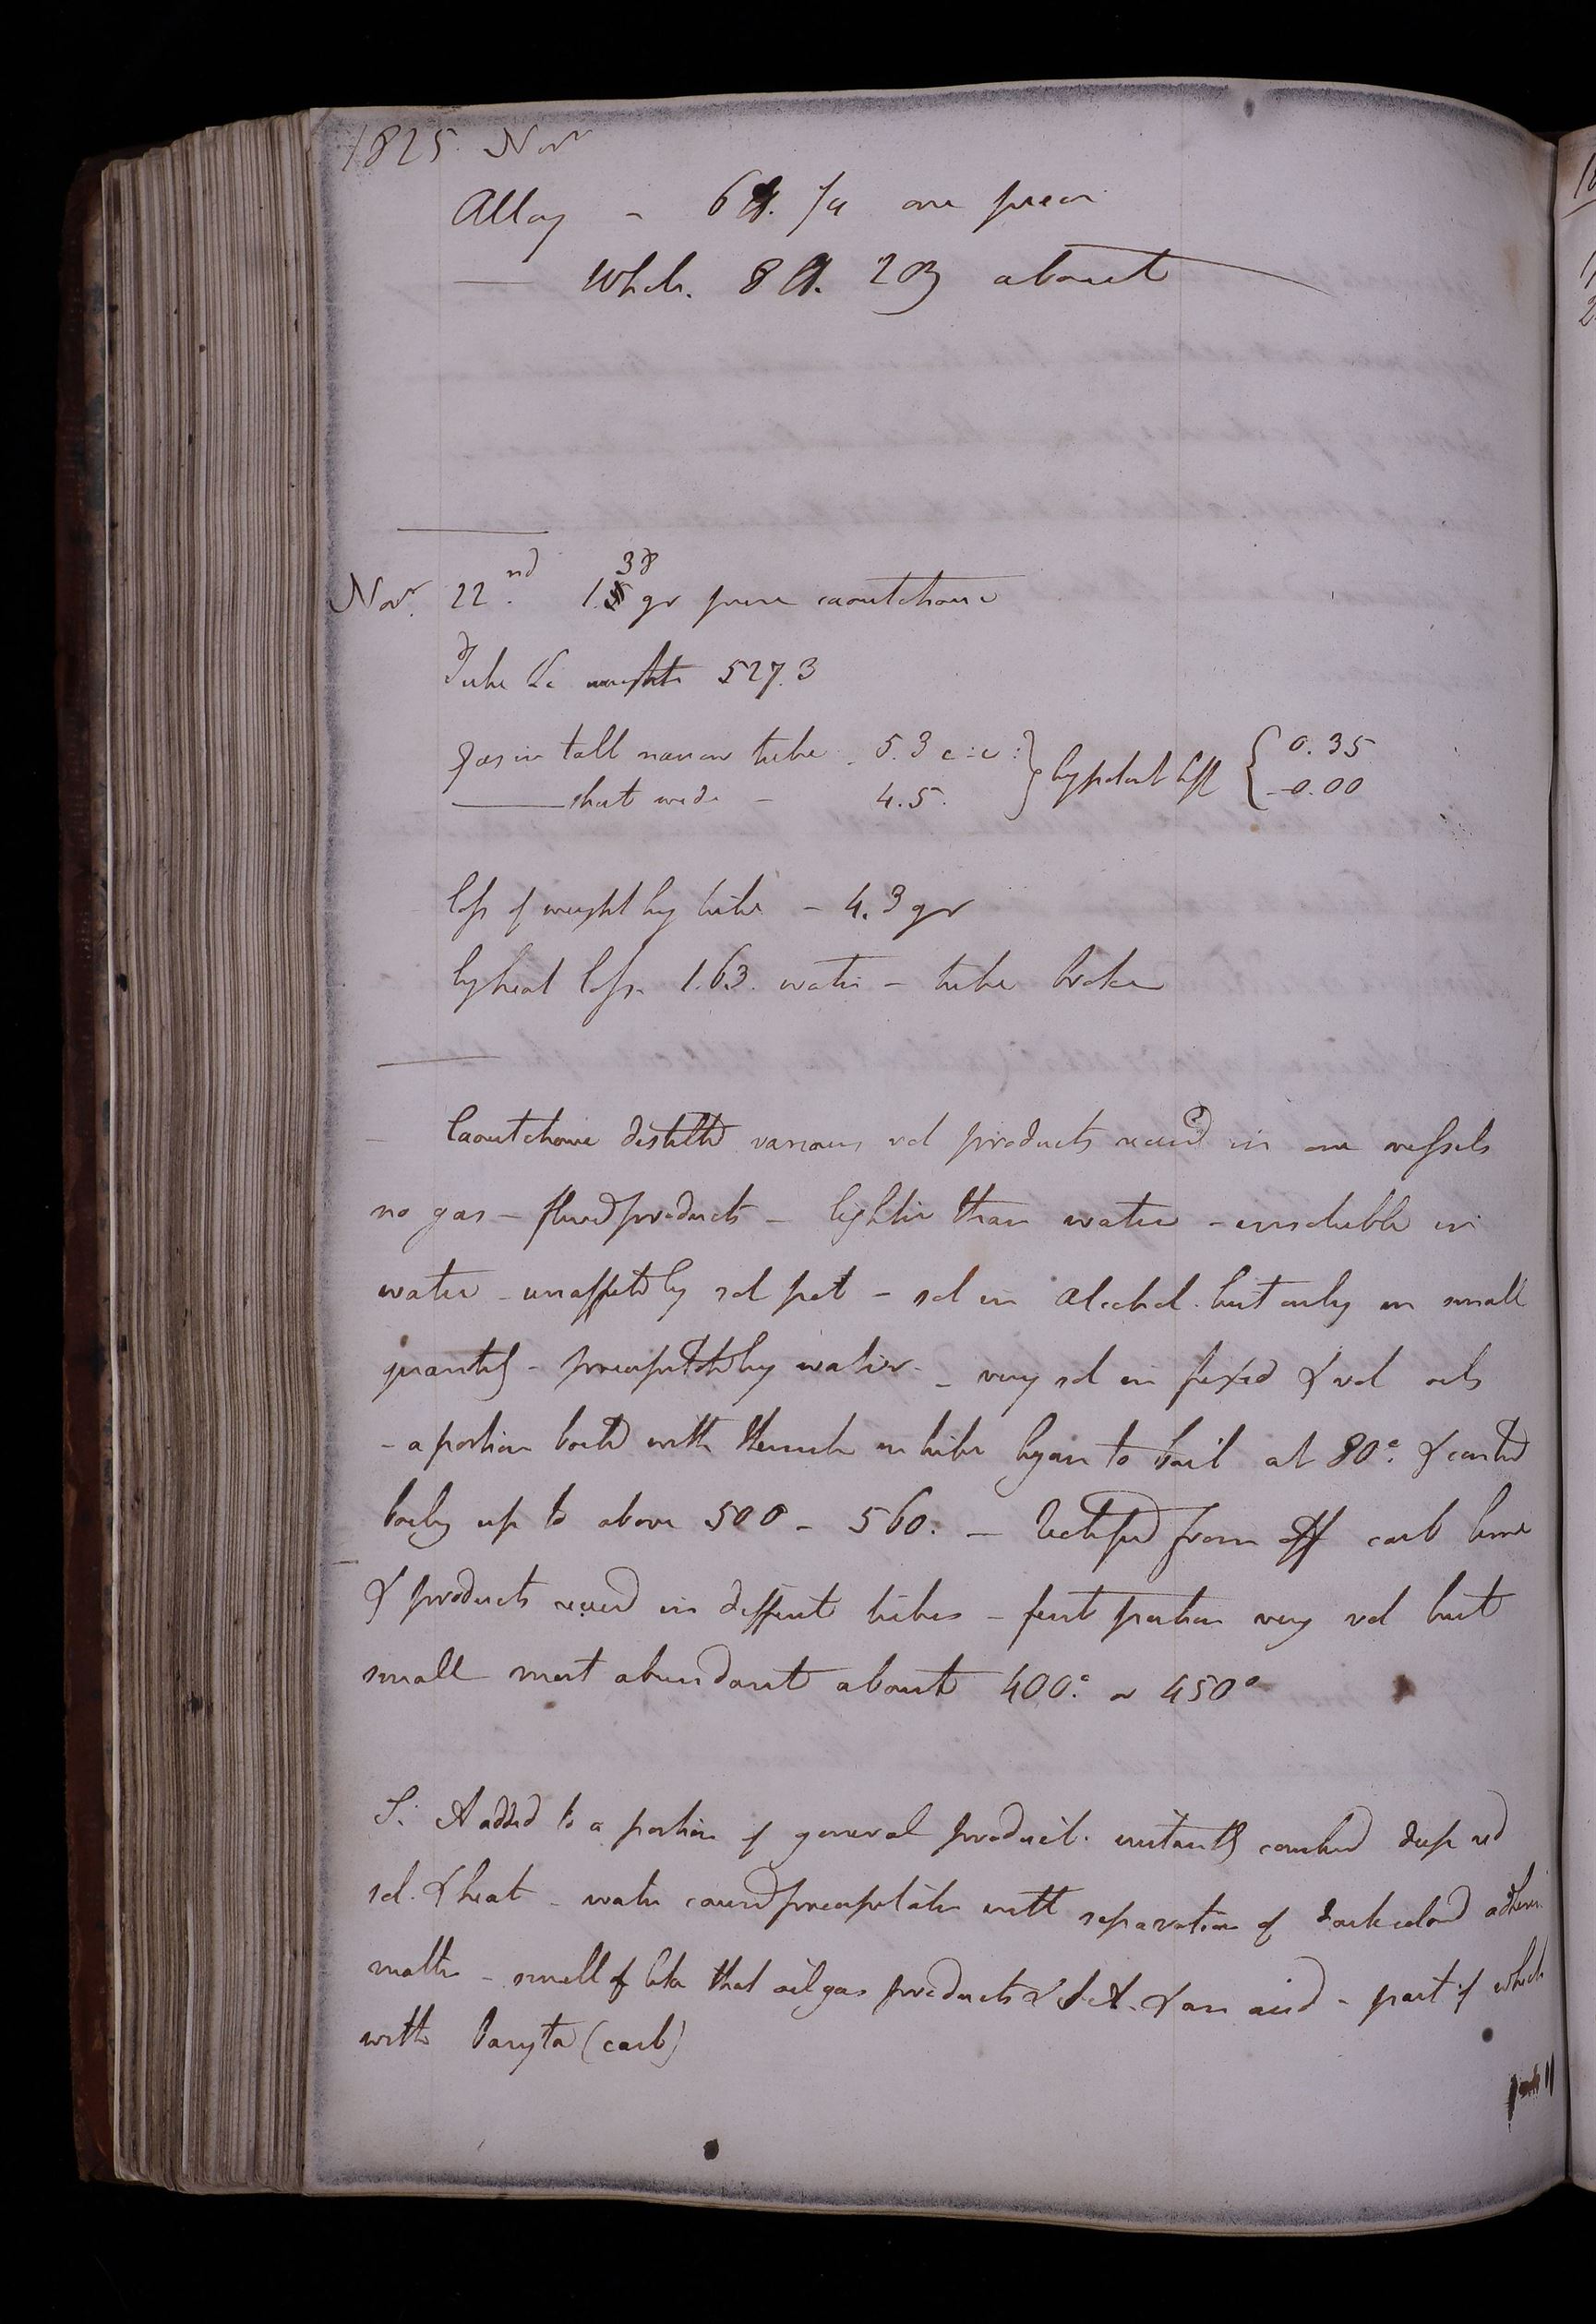 1825. Novr
Alloy - 6 lb. 1/4 one piece
— Whole. 8 lb. 2 oz about
Novr. 22nd. 1.38 gr pure caoutchouc
Tube &c weighs 527.3
gas in tall narrow tube - 5.3 c : i : } by potash left { 0.35
—— short wide - 4.5. 0.00
loss of weight by tube - 4.3 gr
by heat loss 1.63. water - tube broke
- Caoutchouc distilled various vol products recd in one vessels
no gas - fluid products - lighter than water - insoluble in
water - unaffected by sol pot - sol in alcohol. but only in small
quantity - precipitated by water - very sol in fixed & vol oils
- a portion boild with thermeter in tube began to boil at 80°. & contd
boiling up to above 500 - 560. - Rectified from off carb lime
& products recd in diffrent tubes - first portion very vol but
small most abundant about 400°. or 450°
S. A added to a portion of general product. instantly combind deep red
sol. & heat - water causd precipitation with separation of dark colord adhesive
matter - smell of like that oil gas products & S A. & an acid - part of which
with Baryta (carb)